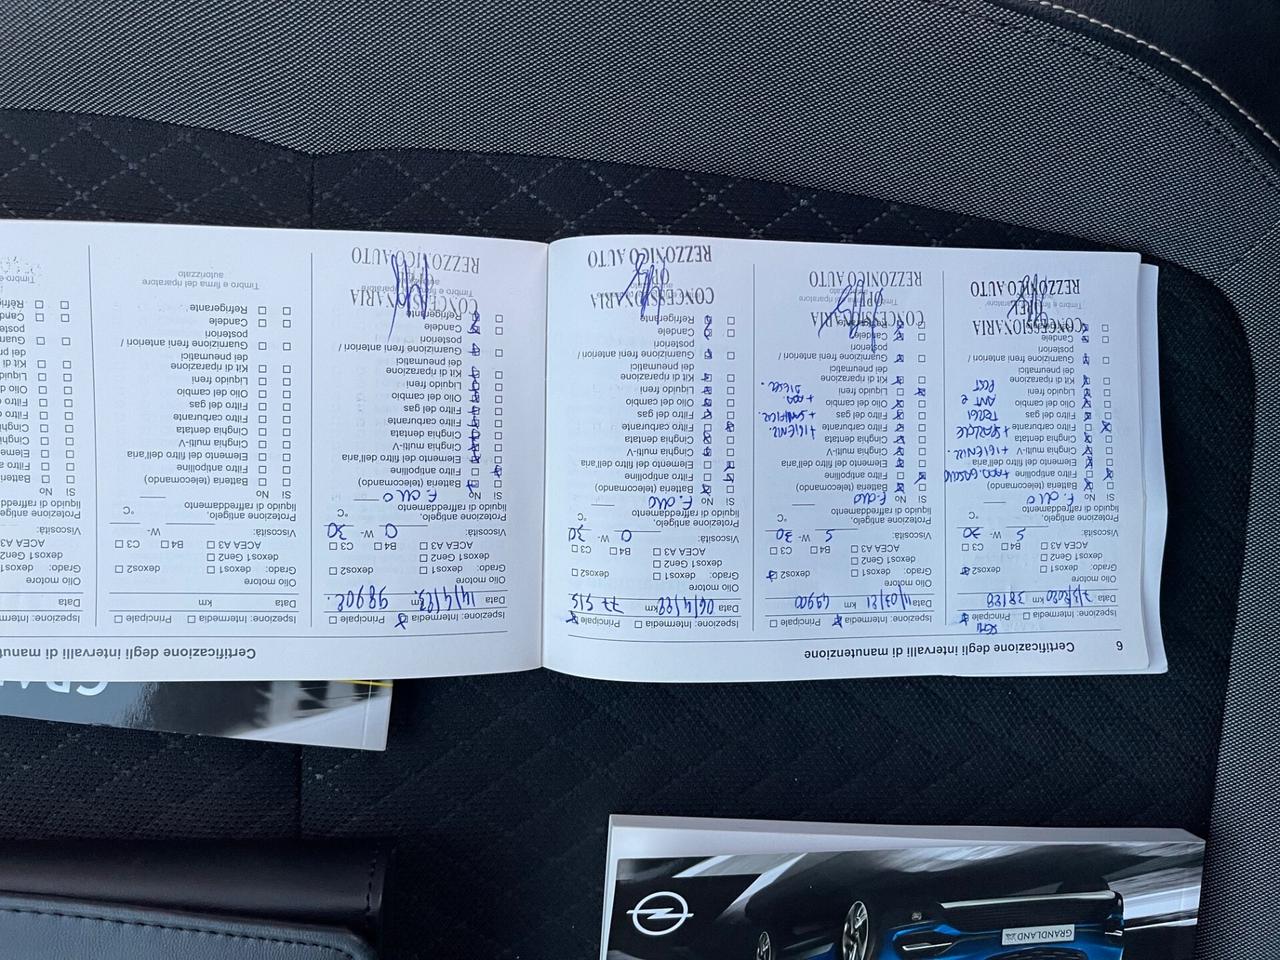 6 Certificazione degli intervalli di manutenzione
Ispezione: Intermedia Principale
Data km 38128
Olio motore
Grado: dexos1 dexos2
dexos1 Gen2
ACEA A3 B4 C3
Viscosità: 5 W- 30
Protezione, antigelo,
liquido di raffreddamento °C
Sì No F. olio
Batteria (telecomando)
Filtro antipolline
Elemento del filtro dell'aria
Cinghia multi-V
Cinghia dentata
Filtro carburante
Filtro del gas
Olio del cambio
Liquido freni
Kit di riparazione
dei pneumatici
Guarnizione freni anteriori /
posteriori
Candele
+ IGIENIZ.
TERGI
ANT E
POST
CONCESSIONARIA
OPEL
REZZONICO AUTO
Ispezione: Intermedia Principale
Data 11/03/21 km 49900
Olio motore
Grado: dexos1 dexos2
dexos1 Gen2
ACEA A3 B4 C3
Viscosità: 5 W- 30
Protezione, antigelo,
liquido di raffreddamento °C
Sì No F. olio
Batteria (telecomando)
Filtro antipolline
Elemento del filtro dell'aria
Cinghia multi-V
Cinghia dentata
Filtro carburante
Filtro del gas
Olio del cambio
Liquido freni
Kit di riparazione
dei pneumatici
Guarnizione freni anteriori /
posteriori
Candele
Refrigerante
+ IGIENIZ.
+ ADD.
DIESEL.
CONCESSIONARIA
OPEL
REZZONICO AUTO
Ispezione: Intermedia Principale
Data 06/4/22 km 77 515
Olio motore
Grado: dexos1 dexos2
dexos1 Gen2
ACEA A3 B4 C3
Viscosità: 0 W- 30
Protezione, antigelo,
liquido di raffreddamento °C
Sì No F. olio
Batteria (telecomando)
Filtro antipolline
Elemento del filtro dell'aria
Cinghia multi-V
Cinghia dentata
Filtro carburante
Filtro del gas
Olio del cambio
Liquido freni
Kit di riparazione
dei pneumatici
Guarnizione freni anteriori /
posteriori
Candele
Refrigerante
CONCESSIONARIA
REZZONICO AUTO
Certificazione degli intervalli di manut
Ispezione: Intermedia Principale
Data 14/4/23 km 98902.
Olio motore
Grado: dexos1 dexos2
dexos1 Gen2
ACEA A3 B4 C3
Viscosità: 0 W- 30
Protezione, antigelo,
liquido di raffreddamento °C
Sì No F. olio
Batteria (telecomando)
Filtro antipolline
Elemento del filtro dell'aria
Cinghia multi-V
Cinghia dentata
Filtro carburante
Filtro del gas
Olio del cambio
Liquido freni
Kit di riparazione
dei pneumatici
Guarnizione freni anteriori /
posteriori
Candele
Refrigerante
CONCESSIONARIA
REZZONICO AUTO
Ispezione: Intermedia Principale
Data km
Olio motore
Grado: dexos1 dexos2
dexos1 Gen2
ACEA A3 B4 C3
Viscosità: W-
Protezione, antigelo,
liquido di raffreddamento °C
Sì No
Batteria (telecomando)
Filtro antipolline
Elemento del filtro dell'aria
Cinghia multi-V
Cinghia dentata
Filtro carburante
Filtro del gas
Olio del cambio
Liquido freni
Kit di riparazione
dei pneumatici
Guarnizione freni anteriori /
posteriori
Candele
Refrigerante
Timbro e firma del riparatore
autorizzato
GRANDLAND